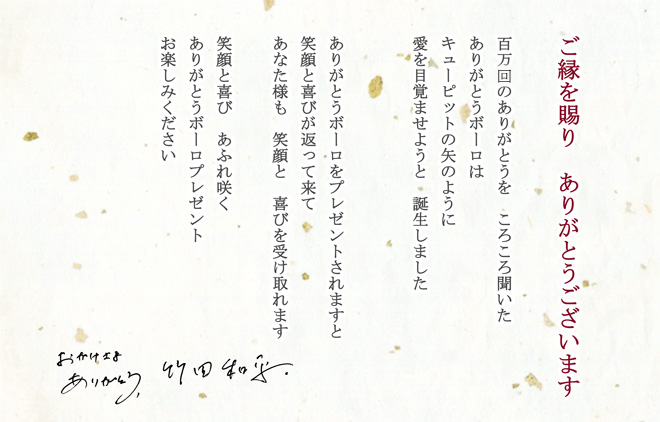 ご縁を賜り　ありがとうございます
百万回のありがとうを　ころころ聞いた
ありがとうボーロは
キューピットの矢のように
愛を目覚ませようと　誕生しました
ありがとうボーロをプレゼントされますと
笑顔と喜びが返って来て
あなた様も　笑顔と　喜びを受け取れます
笑顔と喜び　あふれ咲く
ありがとうボーロプレゼント
お楽しみください
竹田和平.
おかげさま
ありがとう,